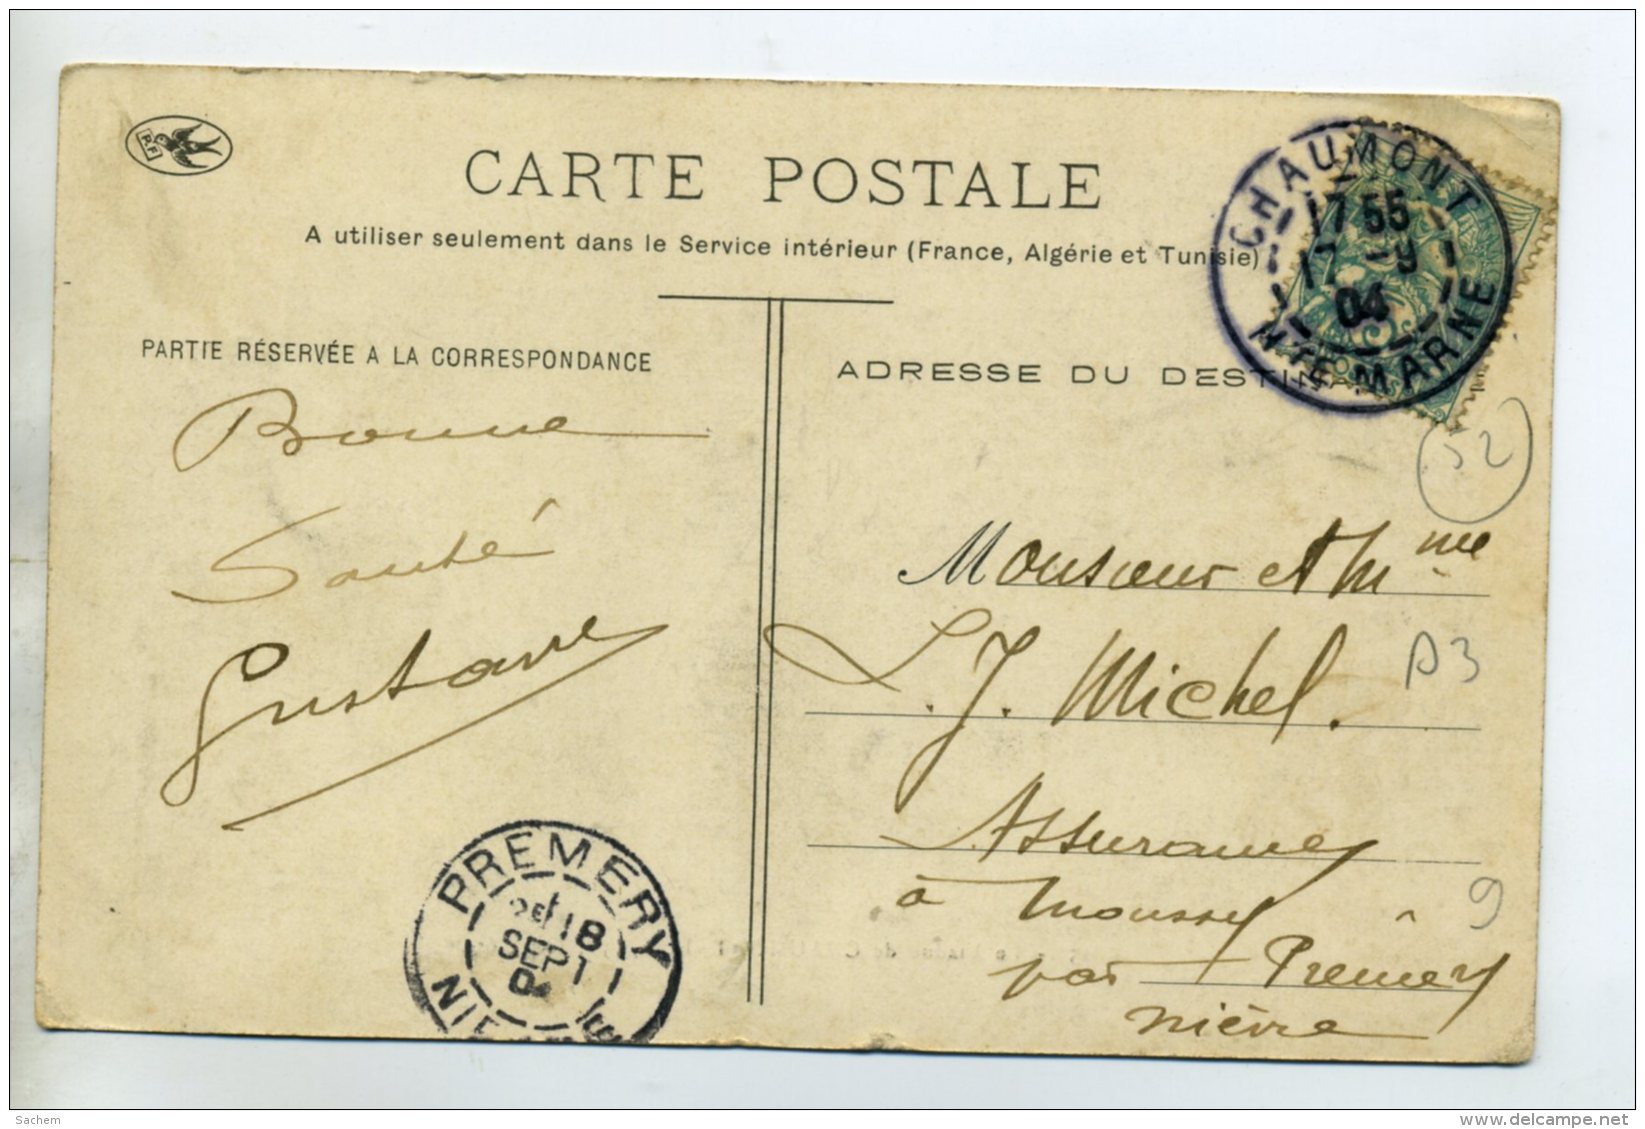 P.F.
CARTE POSTALE
A utiliser seulement dans le Service intérieur (France, Algérie et Tunisie)
CHAUMONT
17 55
17 -9
04
HTE MARNE
PARTIE RÉSERVÉE A LA CORRESPONDANCE
ADRESSE DU DESTINA
Bonne
Santé
Gustave
52
Monsieur et Mme
L. J. Michel.
Assurances
à Moussy
par Prémery
Nièvre
A3
9
PREMERY
18
SEPT
04
NIÈ
Sachem
delcampe.net